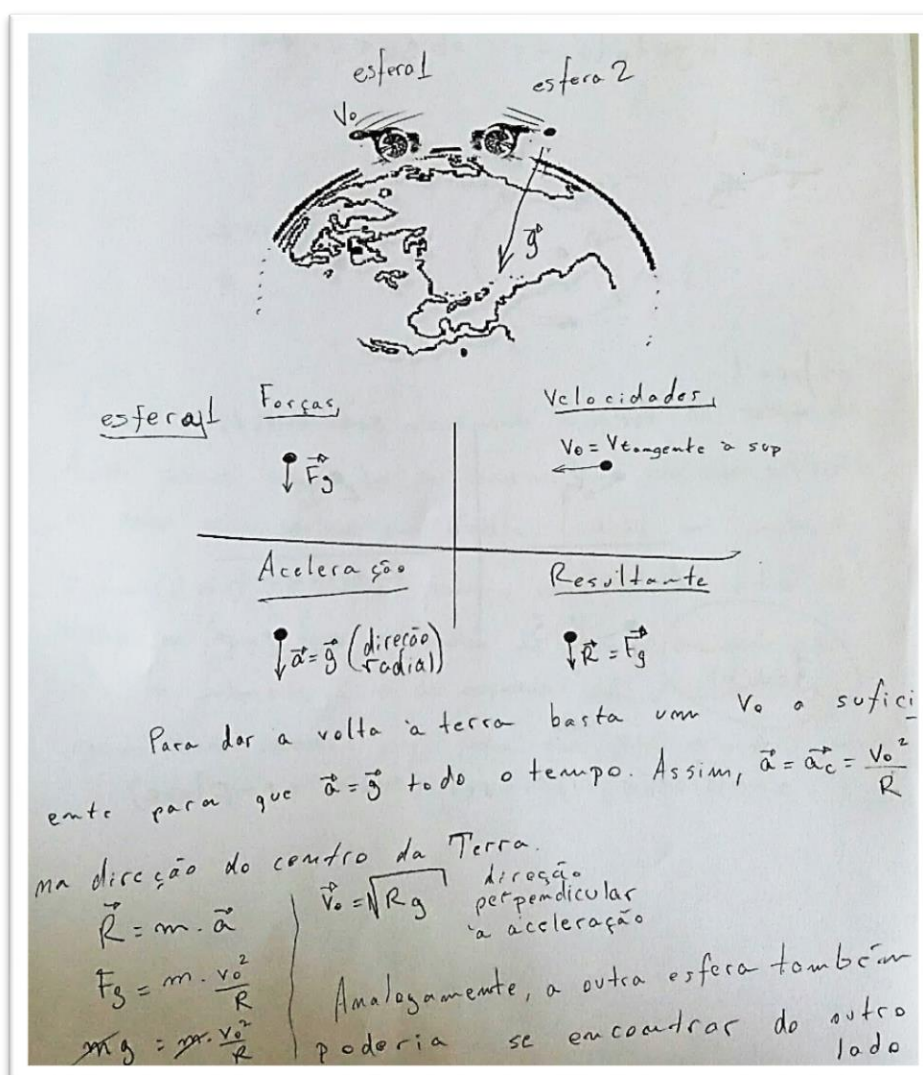 esfera 1
esfera 2
V₀
g⃗
esfera 1
Forças
Velocidades
F⃗g
V₀ = Vtangente à sup
Aceleração
Resultante
a⃗ = g⃗ (direção radial)
R⃗ = F⃗g
Para dar a volta à terra basta um V₀ o sufici
ente para que a⃗ = g⃗ todo o tempo. Assim, a⃗ = a⃗c = V₀²/R
na direção do centro da Terra.
R⃗ = m . a⃗
Fg = m . v₀²/R
mg = m . v₀²/R
V⃗₀ = √Rg direção
perpendicular
à aceleração
Analogamente, a outra esfera também
poderia se encontrar do outro
lado